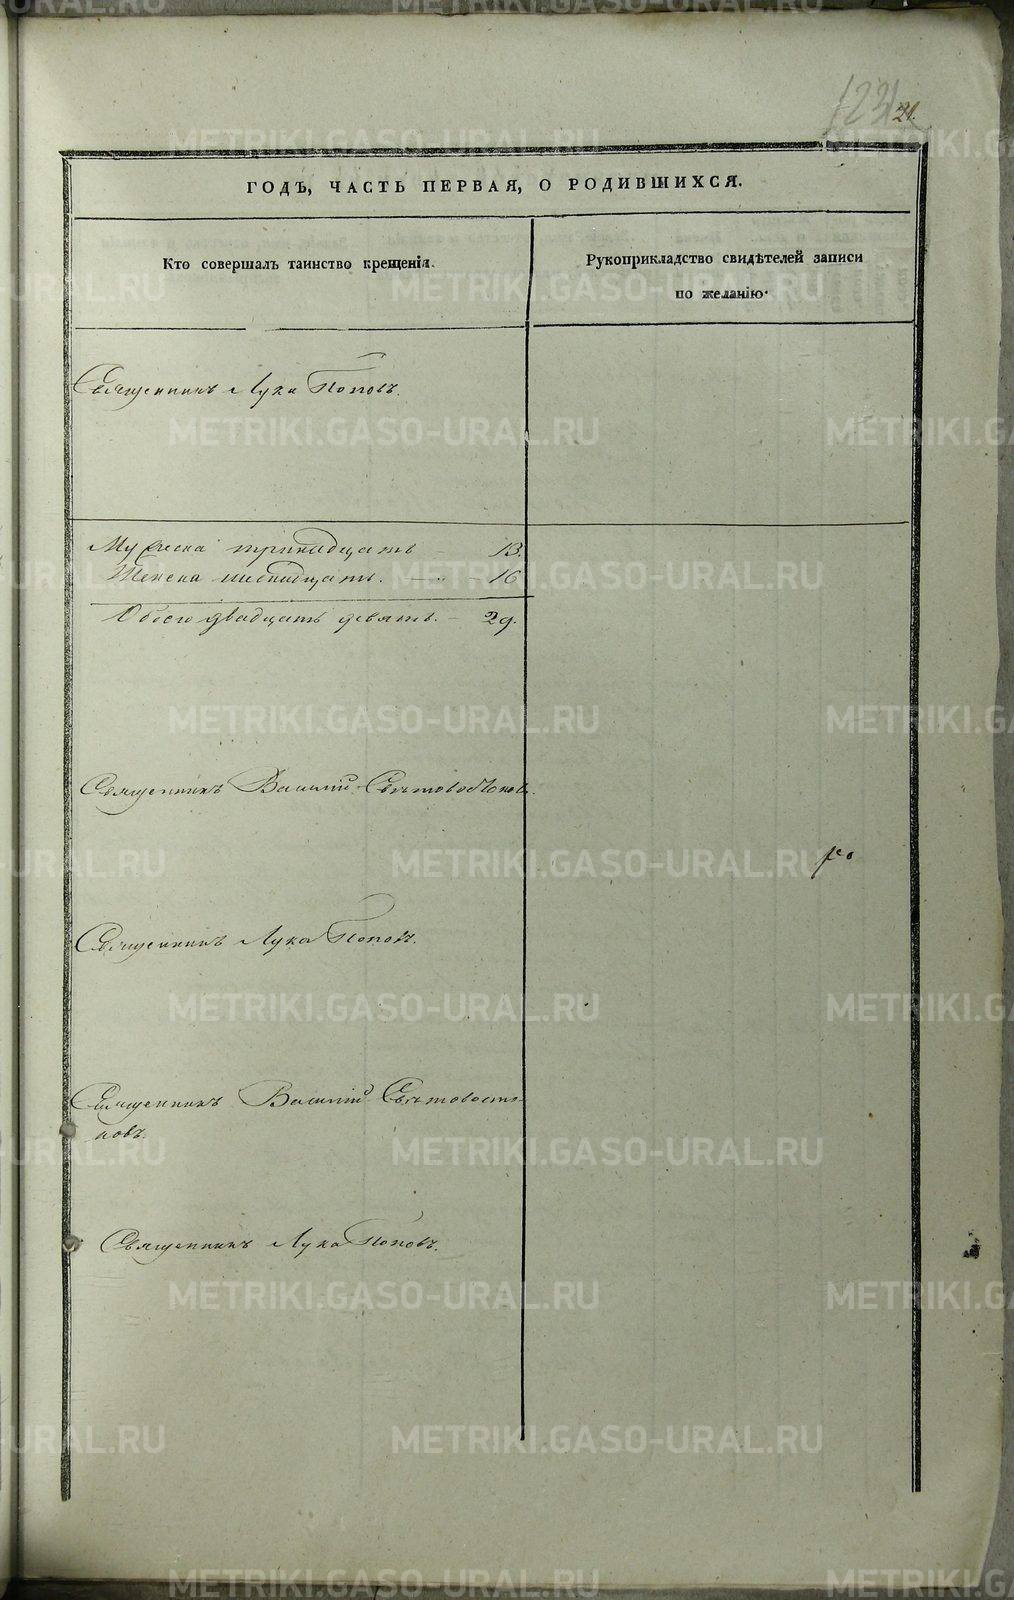 123
21.
ГОДЪ, ЧАСТЬ ПЕРВАЯ, О РОДИВШИХСЯ.
Кто совершалъ таинство крещенія.
Рукоприкладство свидѣтелей записи
по желанію.
Священникъ Лука Поповъ.
Мужеска тринадцать — 13.
Женска шестнадцать. — 16
Обоего двадцать девять. — 29.
Священникъ Василій
Священникъ Лука Поповъ.
Священникъ Василій
новъ.
Священникъ Лука Поповъ.
METRIKI.GASO-URAL.RU